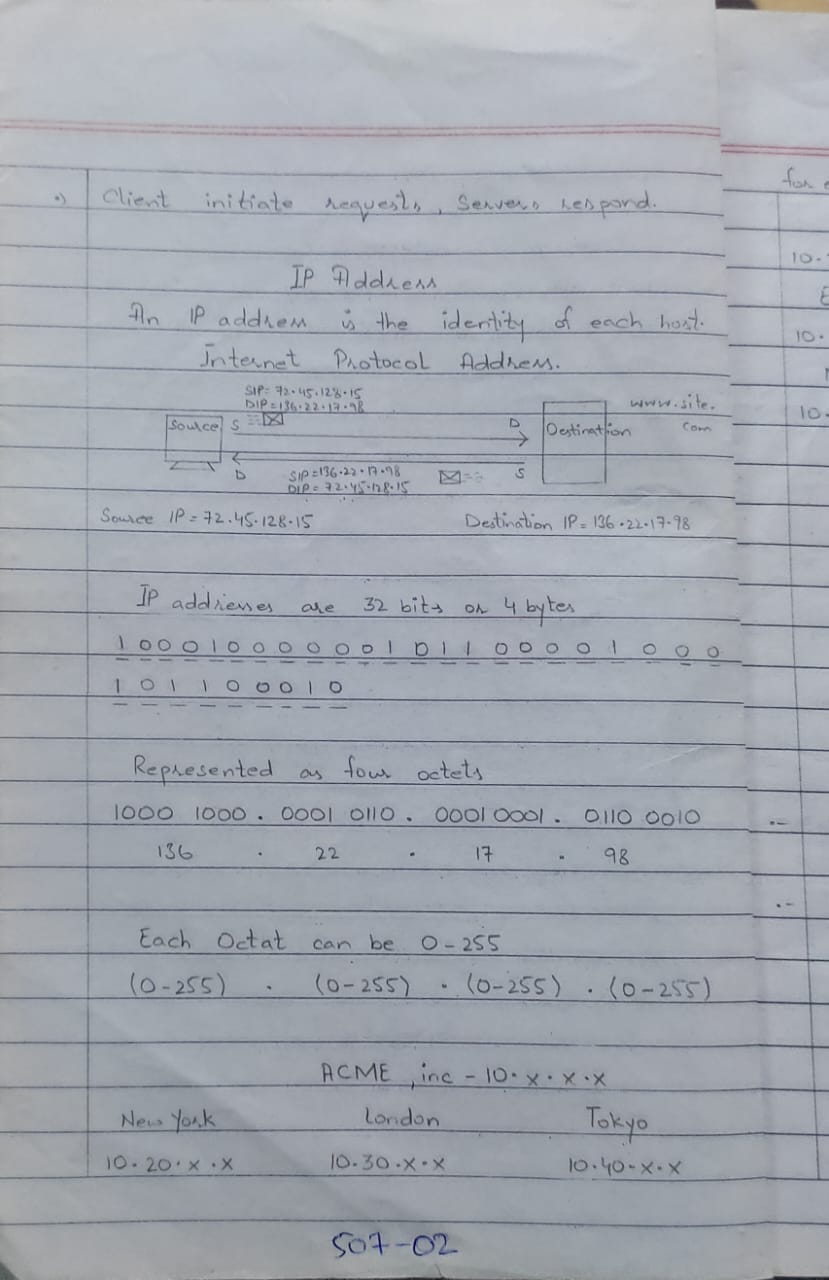 •) Client initiate requests, Servers respond.
IP Address
An IP address is the identity of each host.
Internet Protocol Address.
SIP= 72.45.128.15
DIP=136.22.17.98
www.site.
Source S D Destination com
D SIP=136.22.17.98 S
DIP= 72.45.128.15
Source IP = 72.45.128.15 Destination IP= 136.22.17.98
IP addresses are 32 bits or 4 bytes
1 0 0 0 1 0 0 0 0 0 0 1 0 1 1 0 0 0 0 1 0 0 0
1 0 1 1 0 0 0 1 0
Represented as four octets
1000 1000 . 0001 0110 . 0001 0001 . 0110 0010
136 . 22 . 17 . 98
Each Octat can be 0-255
(0-255) . (0-255) . (0-255) . (0-255)
ACME, inc - 10.x.x.x
New York London Tokyo
10.20.x.x 10.30.x.x 10.40.x.x
507-02
for
10.
10.
10.